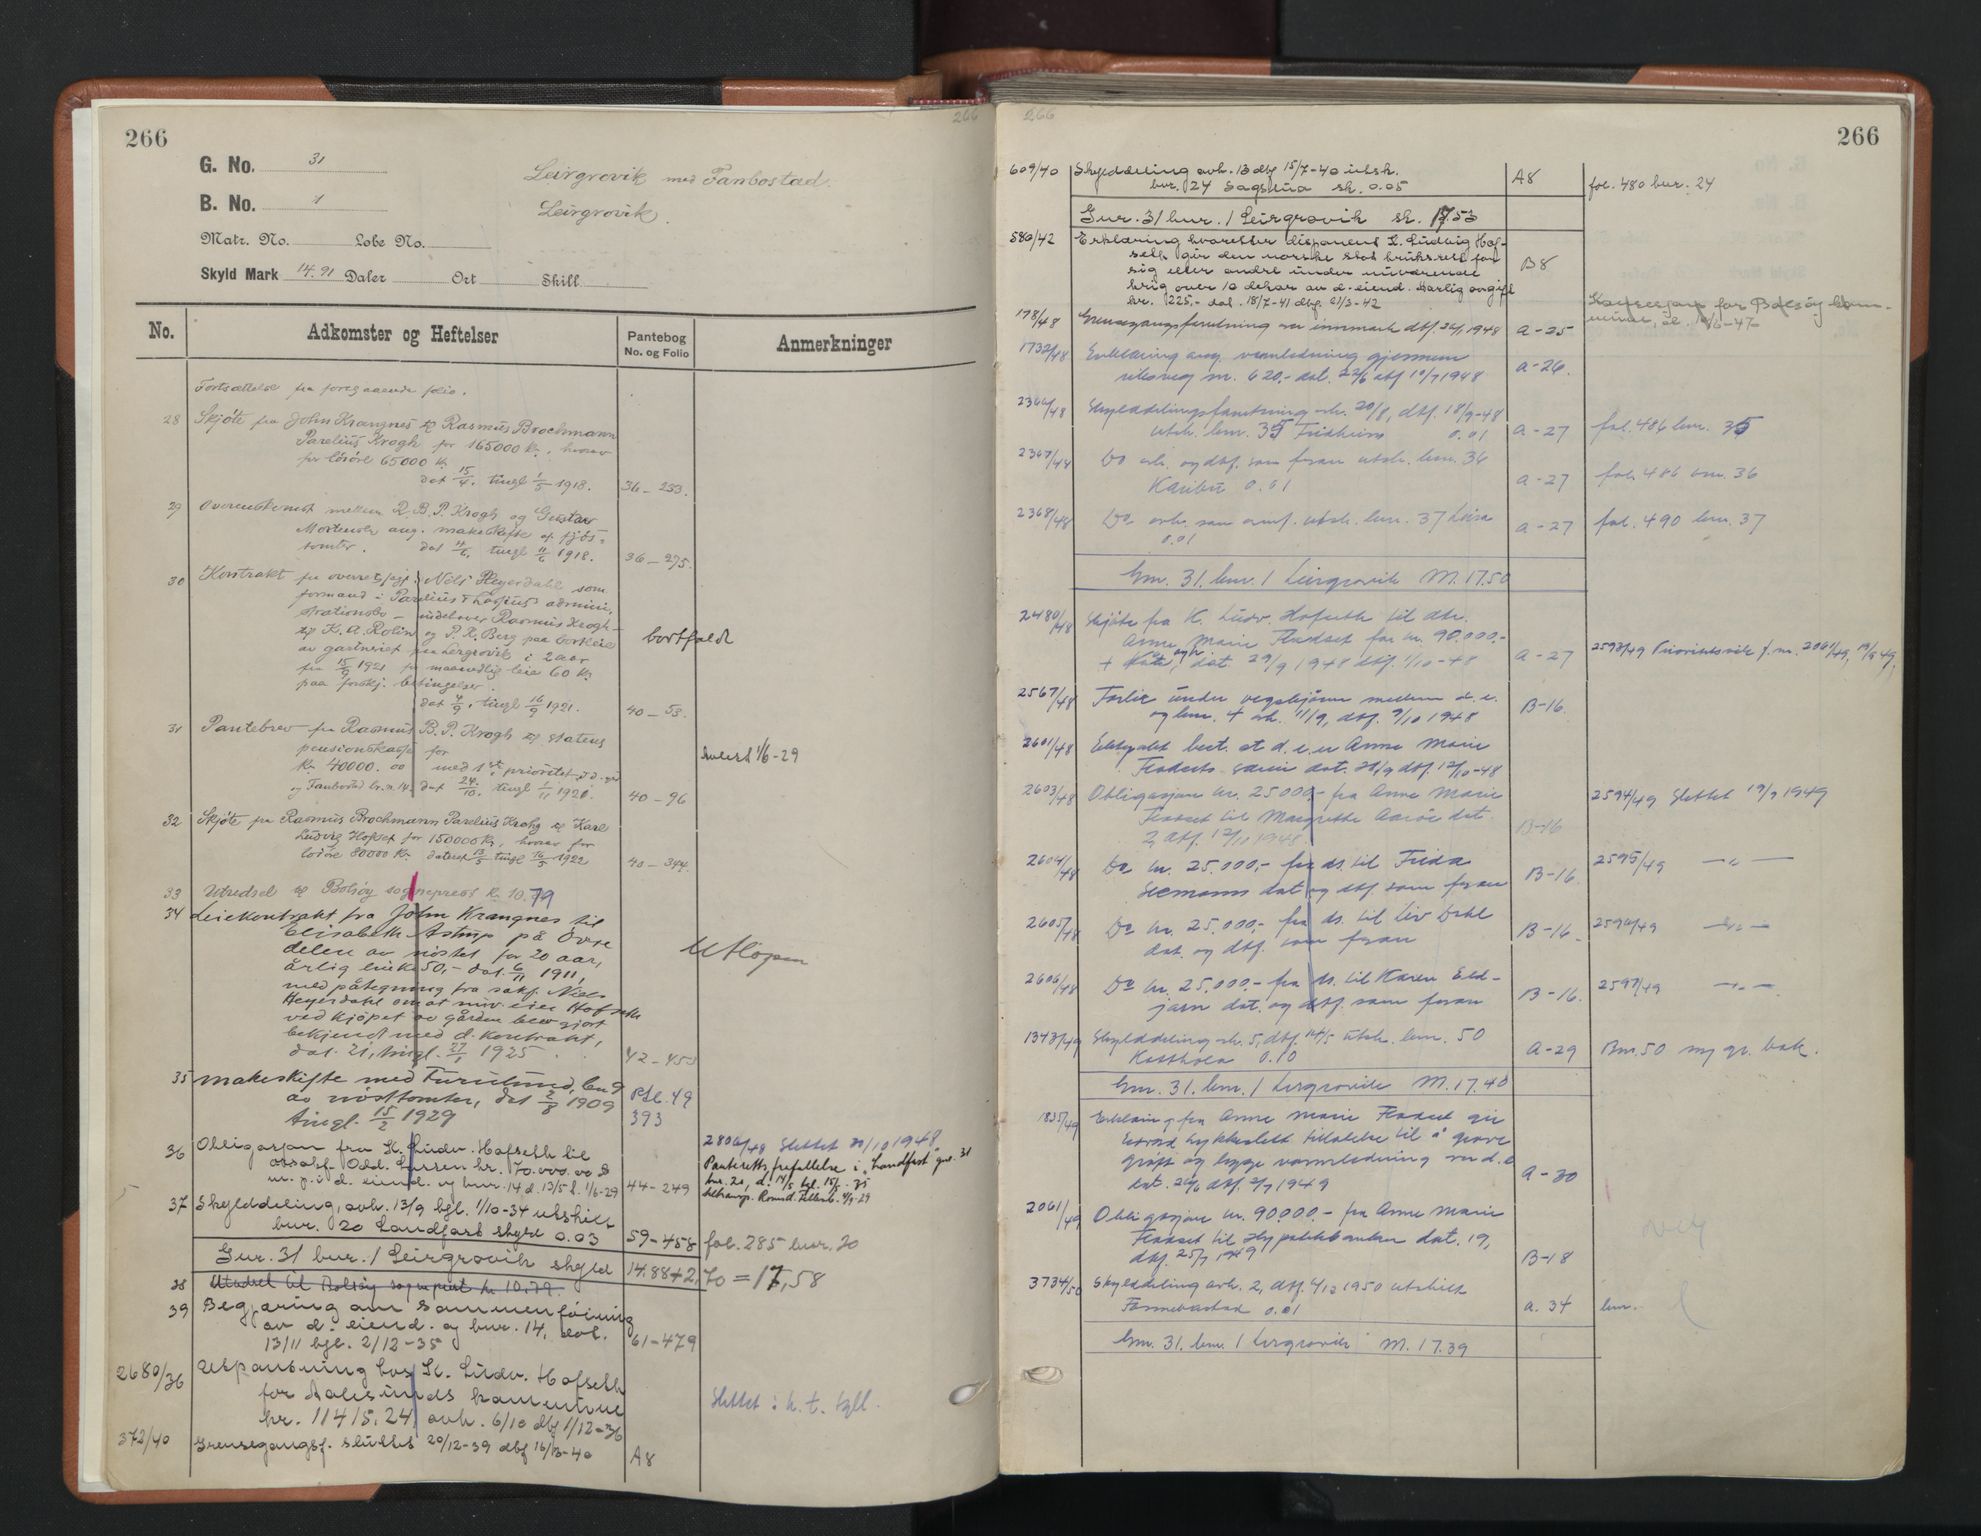 266
266
G. No. 31
Leirgrovik med Fanbostad.
B. No. 1
Leirgrovik.
Matr. No. Løbe No.
Skyld Mark 14.91 Daler Ort Skill
No.
Adkomster og Heftelser
Pantebog
No. og Folio
Anmerkninger
Fortsættelse fra foregaaende folio.
28 Skjøte fra John Krangnes til Rasmus Brochmann
Parelius Krogh for 165000 Kr., hvorav
for løsøre 65000 Kr.
dat 15/4, tingl 1/5 1918. 36-253.
29 Overenskomst mellem R. B. P. Krogh og Gustav
ang. makeskifte af fjøs-
tomter. dat 4/6, tingl 11/6 1918. 36-275.
30 Kontrakt fra overretssagf. Nils Heyerdahl som
formand i Parelius &
indehaver Rasmus Krogh -
til K. A. Rolin og P. R. Berg paa bortleie
av gartneriet paa Leirgrovik i 2 aar
fra 15/9 1921 for maanedlig leie 60 Kr.
paa forskj. betingelser.
dat 4/9, tingl 16/9 1921. 40-53.
bortfaldt
31 Pantebrev fra Rasmus B. P. Krogh til statens
pensionskasse for
Kr. 40000.00 med 1st prioritet i d. eie
og Fanbostad br.n. 14. dat 24/10, tingl 1/11 1921. 40-96
Avlest 1/6-29
32 Skjøte fra Rasmus Brochmann Parelius Krohg til Karl
Ludvig Hofset for 150000 Kr., hvorav for
løsøre 80000 Kr. dateret 13/5 tingl 16/5 1922 40-344.
33 Utredsel til Bolsøy sogneprest kr. 10.79
34 Leiekontrakt fra John Krangnes til
Elisabeth Astrup på øvre
delen av nøstet for 20 aar,
årlig leie k 50,- dat 6/11 1911,
med påtegning fra sakf. Niels
Heyerdahl om at nuv. eier Hofseth
ved kjøpet av gården blev gjort
bekjendt med d. kontrakt,
dat. 21, tingl. 27/1 1925. 42-453
Utløpen
35 Makeskifte med Furulund, bn 9
av nøsttomter, dat 2/8 1909
tingl. 15/2 1929
Ptb. 49
393
36 Obligasjon fra K. Ludv. Hofseth til
Odd. Larsen kr. 70.000.00
m. p. i d. eiend. og bnr. 14 d. 13/5 t. 1/6-29 44-249
2806/48 Slettet 30/10 1948
Panteretts frafallelse i "Landfast" gnr. 31
bnr. 20, d. 14/5 tgl. 15/5-35
37 Skylddeling, avh. 13/9 bgl. 1/10-34 utskilt
bnr. 20 Landfast skyld 0.03 59-458 fol. 285 bnr. 20
Gnr. 31 bnr. 1 Leirgrovik skyld 14.88+2,70 = 17,58
38 Utredsel til Bolsøy sogneprest kr 10.79.
39 Begjæring om sammenføining
av d. eiend. og bnr. 14, dat.
13/11 bgl. 2/12-35 61-479
2680/36 Utpantning hos K. Ludv. Hofseth
for Aalesunds kommune
kr. 11415,24, avh. 6/10 dbf 1/12-36
Slettet i h. t. tgll.
372/40 Grensegangsf. sluttet 20/12-39 dbf 16/3-40 A8
266
266
609/40 Skylddeling avh. 13 dbf 15/7-40 utsk.
bnr. 24 Sagstua sk. 0.05 A8 fol. 480 bnr. 24
Gnr. 31 bnr. 1 Leirgrovik sk. 17.53
580/42 Erklæring hvoretter disponent K. Ludvig Hof-
seth gir den norske stat bruksrett for
sig eller andre under nuværende
krig over 10 dekar av d. eiend. Aarlig avgift
kr. 225,- dat. 18/7-41 dbf. 21/3-42 B8
Konsesjon for Bolsøy kom-
mune,
178/48 Grensegangsforretning over innmark dbf. 26/1 1948 A-25
1732/48 Erklæring ang. vannledning gjennom
riksveg nr. 620,- dat. 22/6 dbf 10/7 1948 A-26.
2366/48 Skylddelingsforretning avh. 20/8, dbf. 18/9-48
utsk. bnr. 35 Fridheim 0.01 A-27 fol. 486 bnr. 35
2367/48 Do avh. og dbf. som foran utsk. bnr. 36
Karibu 0.01 A-27 fol. 486 bnr. 36
2368/48 Do avh. som utsk. bnr. 37
0.01 A-27 fol. 490 bnr. 37
Gnr. 31. bnr. 1 Leirgrovik M. 17.50
2480/48 Skjøte fra K. Ludv. Hofseth til
Anne Marie Fladset for kr. 90.000.-
dat 29/9 1948 dbf. 1/10-48 A-27
2593/49 Prioritetsvik f. nr. 2061/49, 19/9 49.
2567/48 Forlik under vegskjønn mellem d. e.
og bnr. 4 avh. 11/9, dbf. 9/10 1948 B-16.
2601/48 best. at d. e. er Anne Marie
Fladsets særeie dat. 28/9 dbf. 12/10-48
2603/48 Obligasjon kr. 25000,- fra Anne Marie
Fladset til Margrethe Aarøe dat.
2, dbf. 12/10 1948. B-16
2594/49 Slettet 19/9 1949
2604/48 Do kr. 25.000,- fra ds. til Frida
dat og dbf. som foran B-16.
2595/49 —"—
2605/48 Do kr. 25.000,- fra ds. til Liv Dahl
dat. og dbf. som foran B-16.
2596/49 —"—
2606/48 Do kr. 25.000.- fra ds. til Karen Eld-
jarn dat. og dbf. som foran B-16.
2597/49 —"—
1343/49 Skylddeling avh. 5, dbf. 14/5 utsk. bnr. 50
0.10 A-29 Bnr. 50 ny gr. bok.
Gnr. 31. bnr. 1 Leirgrovik M. 17.40
1835/49 Erklæring fra Anne Marie Fladset gir
tillatelse til å grave
grøft og legge vannledning over d. e
dat. 26/6 dbf. 2/7 1949 A-30
2061/49 Obligasjon kr. 90000.- fra Anne Marie
Fladset til Hypotekbanken dat. 19,
dbf. 25/7 1949 B-18
3734/50 Skylddeling avh. 2, dbf 4/12 1950 utskilt
Fannebostad 0.01 A. 34 bnr.
Gnr. 31. bnr. 1 Leirgrovik M. 17.39